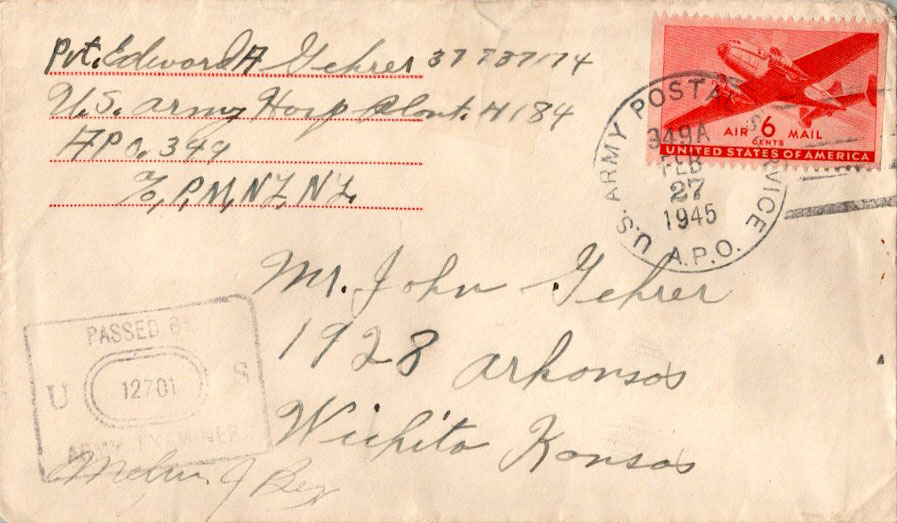 Pvt. Edward A Gehrer 37737174
U.S. Army Hosp Plant. 4184
APO. 349
%, P, M, N.Y, N.Y.
AIR 6 MAIL
CENTS
UNITED STATES OF AMERICA
U.S. ARMY POSTAL SERVICE
349A
FEB
27
1945
A.P.O.
Mr. John Gehrer
1928 Arkansas
Wichita Kansas
PASSED BY
U 12701 S
ARMY EXAMINER